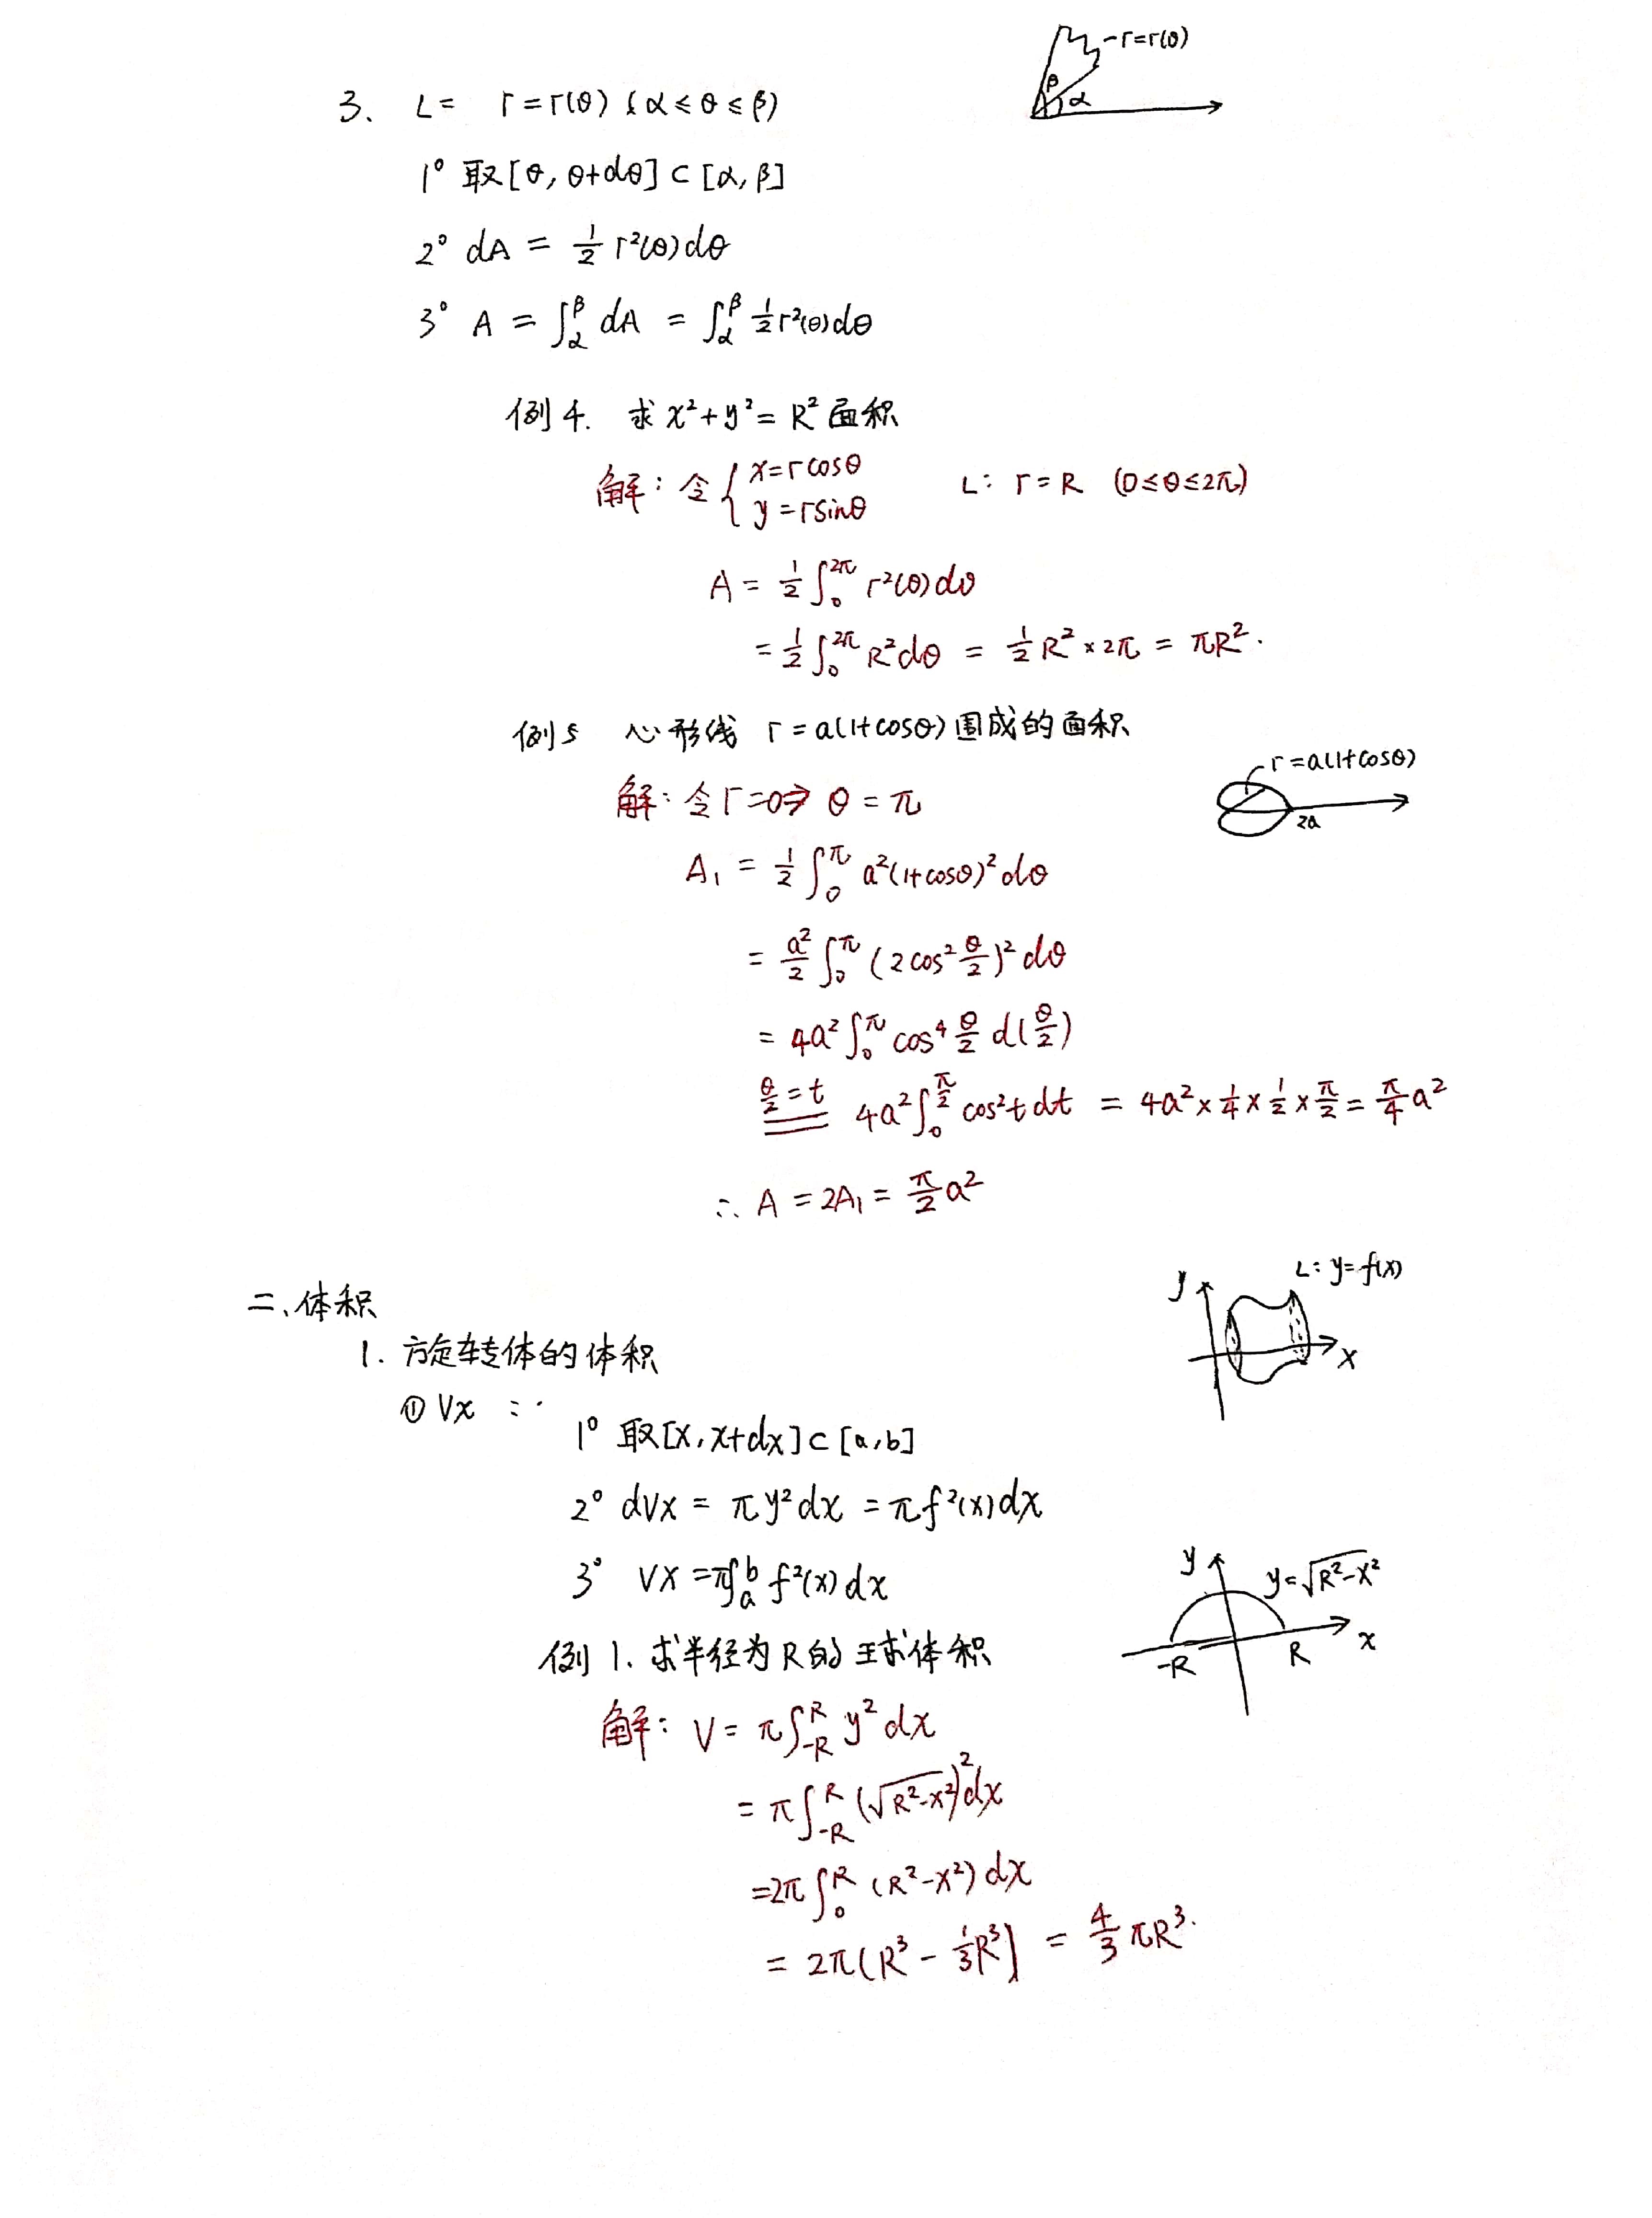 3、 L= r=r(θ) (α≤θ≤β)
-r=r(θ)
β
α
1° 取[θ, θ+dθ]⊂[α,β]
2° dA = 1/2 r²(θ)dθ
3° A = ∫_α^β dA = ∫_α^β 1/2 r²(θ)dθ
例4. 求 x²+y²=R² 面积
解: 令 { x=rcosθ
y=rsinθ
L: r=R (0≤θ≤2π)
A = 1/2 ∫_0^{2π} r²(θ)dθ
= 1/2 ∫_0^{2π} R²dθ = 1/2 R² × 2π = πR².
例5 心形线 r=a(1+cosθ)围成的面积
r=a(1+cosθ)
2a
解: 令r=0⇒ θ=π
A₁ = 1/2 ∫_0^π a²(1+cosθ)²dθ
= a²/2 ∫_0^π (2cos² θ/2)² dθ
= 4a² ∫_0^π cos⁴ θ/2 d(θ/2)
θ/2=t 4a² ∫_0^{π/2} cos²t dt = 4a² × 1/4 × 1/2 × π/2 = π/4 a²
∴ A = 2A₁ = π/2 a²
二、体积
L: y=f(x)
y
x
1. 旋转体的体积
① Vx :·
1° 取[x, x+dx]⊂[a,b]
2° dVx = πy²dx = πf²(x)dx
3° Vx = π∫_a^b f²(x)dx
y
y=√(R²-x²)
-R R x
例1. 求半径为R的球体积
解: V = π∫_{-R}^R y²dx
= π∫_{-R}^R (√(R²-x²))²dx
=2π∫_0^R (R²-x²)dx
= 2π(R³ - 1/3 R³) = 4/3 πR³.